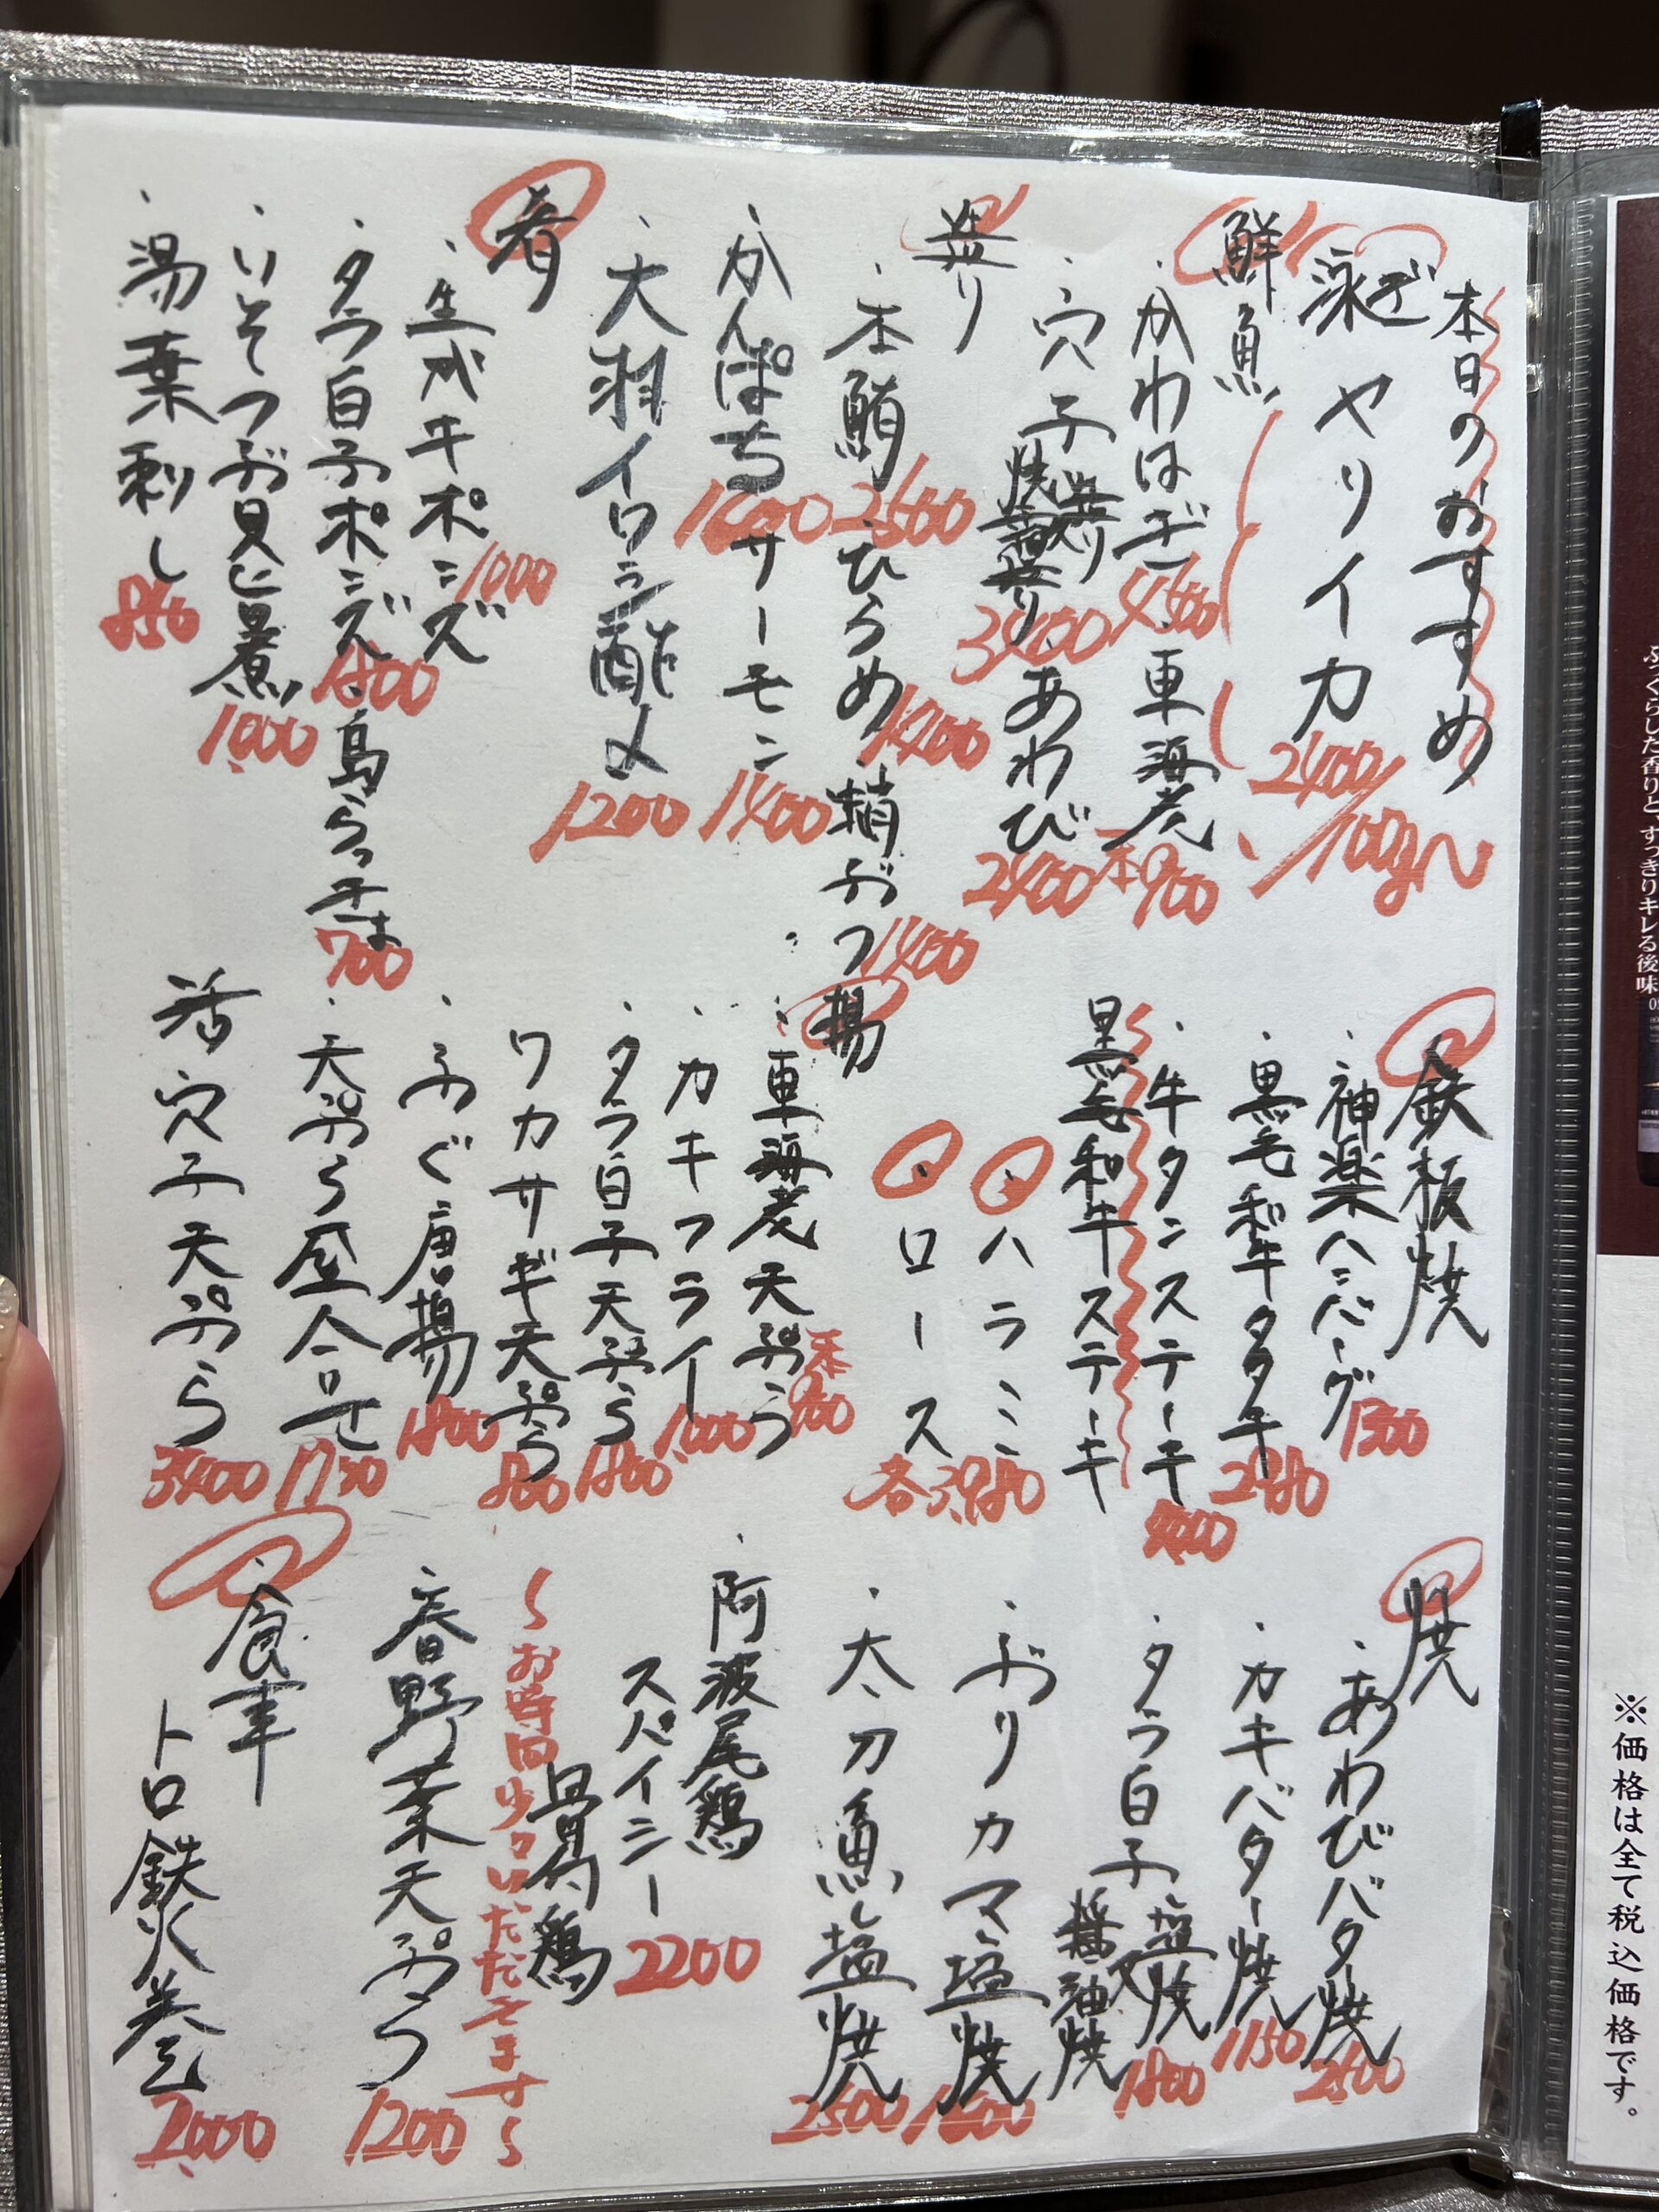 本日のおすすめ
泳ぎ ヤリイカ 2400/100g〜
鮮魚
・かわはぎ 4500
・車海老 一本900
・穴子 焼霜造り 造り 3400
・あわび 2400
造り
・本鮪 2600
・ひらめ 1400
・蛸ぶつ 1400
・かんぱち 1600
・サーモン 1400
・大羽イワシ酢〆 1200
肴
・生ガキポン酢 1000
・タラ白子ポン酢 1800
・島らっきょ 700
・いそつぶ貝に煮 1000
・湯葉刺し 850
鉄板焼
・神楽ハンバーグ 1300
・黒毛和牛タタキ 2980
・牛タンステーキ 4000
黒毛和牛ステーキ
・ハラミ
・ロース 各3980
揚
・車海老天ぷら 一本900
・カキフライ 1000
・タラ白子天ぷら 1800
・ワカサギ天ぷら 800
・ふぐ唐揚 1800
・天ぷら盛合せ 1730
活穴子天ぷら 3400
焼
・あわびバター焼 2500
・カキバター焼 1150
・タラ白子 塩焼 又 醤油焼 1800
・ぶりカマ塩焼 1600
・太刀魚塩焼 2500
・阿波尾鶏
スパイシー骨付鶏 2200
〜お時間少々いただきます〜
・春野菜天ぷら 1200
・食事
トロ鉄火巻 2000
ふっくらした香りと、すっきりキレる後味
※価格は全て税込価格です。